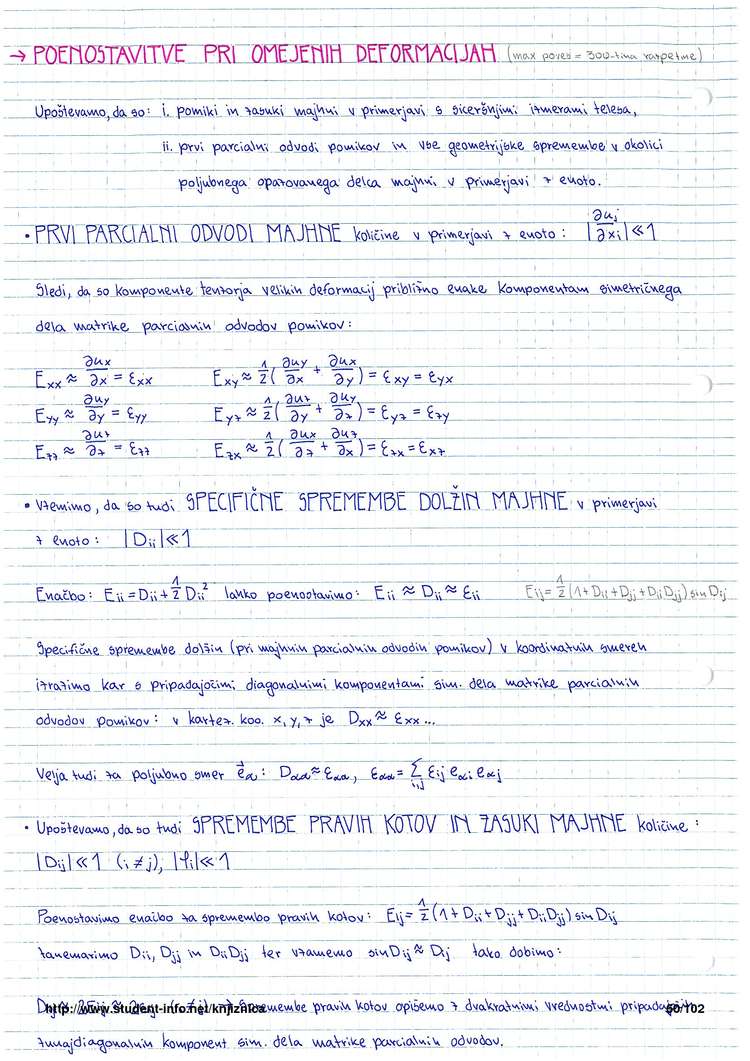 → POENOSTAVITVE PRI OMEJENIH DEFORMACIJAH (max poves = 300-tina razpetine)
Upoštevamo, da so: i. pomiki in zasuki majhni v primerjavi s siceršnjimi izmerami telesa,
ii. prvi parcialni odvodi pomikov in vse geometrijske spremembe v okolici
poljubnega opazovanega delca majhni v primerjavi z enoto.
• PRVI PARCIALNI ODVODI MAJHNE količine v primerjavi z enoto: |∂uj/∂xi| ≪ 1
Sledi, da so komponente tenzorja velikih deformacij približno enake komponentam simetričnega
dela matrike parcialnih odvodov pomikov:
Exx ≈ ∂ux/∂x = εxx Exy ≈ 1/2(∂uy/∂x + ∂ux/∂y) = εxy = εyx
Eyy ≈ ∂uy/∂y = εyy Eyz ≈ 1/2(∂uz/∂y + ∂uy/∂z) = εyz = εzy
Ezz ≈ ∂uz/∂z = εzz Ezx ≈ 1/2(∂ux/∂z + ∂uz/∂x) = εzx = εxz
• Vzemimo, da so tudi SPECIFIČNE SPREMEMBE DOLŽIN MAJHNE v primerjavi
z enoto: |Dii| ≪ 1
Enačbo: Eii = Dii + 1/2 Dii² lahko poenostavimo: Eii ≈ Dii ≈ εii Eij = 1/2(1+Dii+Djj+DiiDjj) sin Dij
Specifične spremembe dolžin (pri majhnih parcialnih odvodih pomikov) v koordinatnih smereh
izrazimo kar s pripadajočimi diagonalnimi komponentami sim. dela matrike parcialnih
odvodov pomikov: v kartez. koo. x, y, z je Dxx ≈ εxx ...
Velja tudi za poljubno smer e⃗α: Dαα ≈ εαα, εαα = ∑i,j εij eαi eαj
• Upoštevamo, da so tudi SPREMEMBE PRAVIH KOTOV IN ZASUKI MAJHNE količine:
|Dij| ≪ 1 (i ≠ j), |φi| ≪ 1
Poenostavimo enačbo za spremembo pravih kotov: Eij = 1/2(1 + Dii + Djj + DiiDjj) sin Dij
zanemarimo Dii, Djj in DiiDjj ter vzamemo sin Dij ≈ Dij tako dobimo:
Dij ≈ 2Eij ≈ 2εij (i ≠ j) → Spremembe pravih kotov opišemo z dvakratnimi vrednostmi pripadajočih
http://www.student-info.net/knjiznica
50/102
zunajdiagonalnih komponent sim. dela matrike parcialnih odvodov.